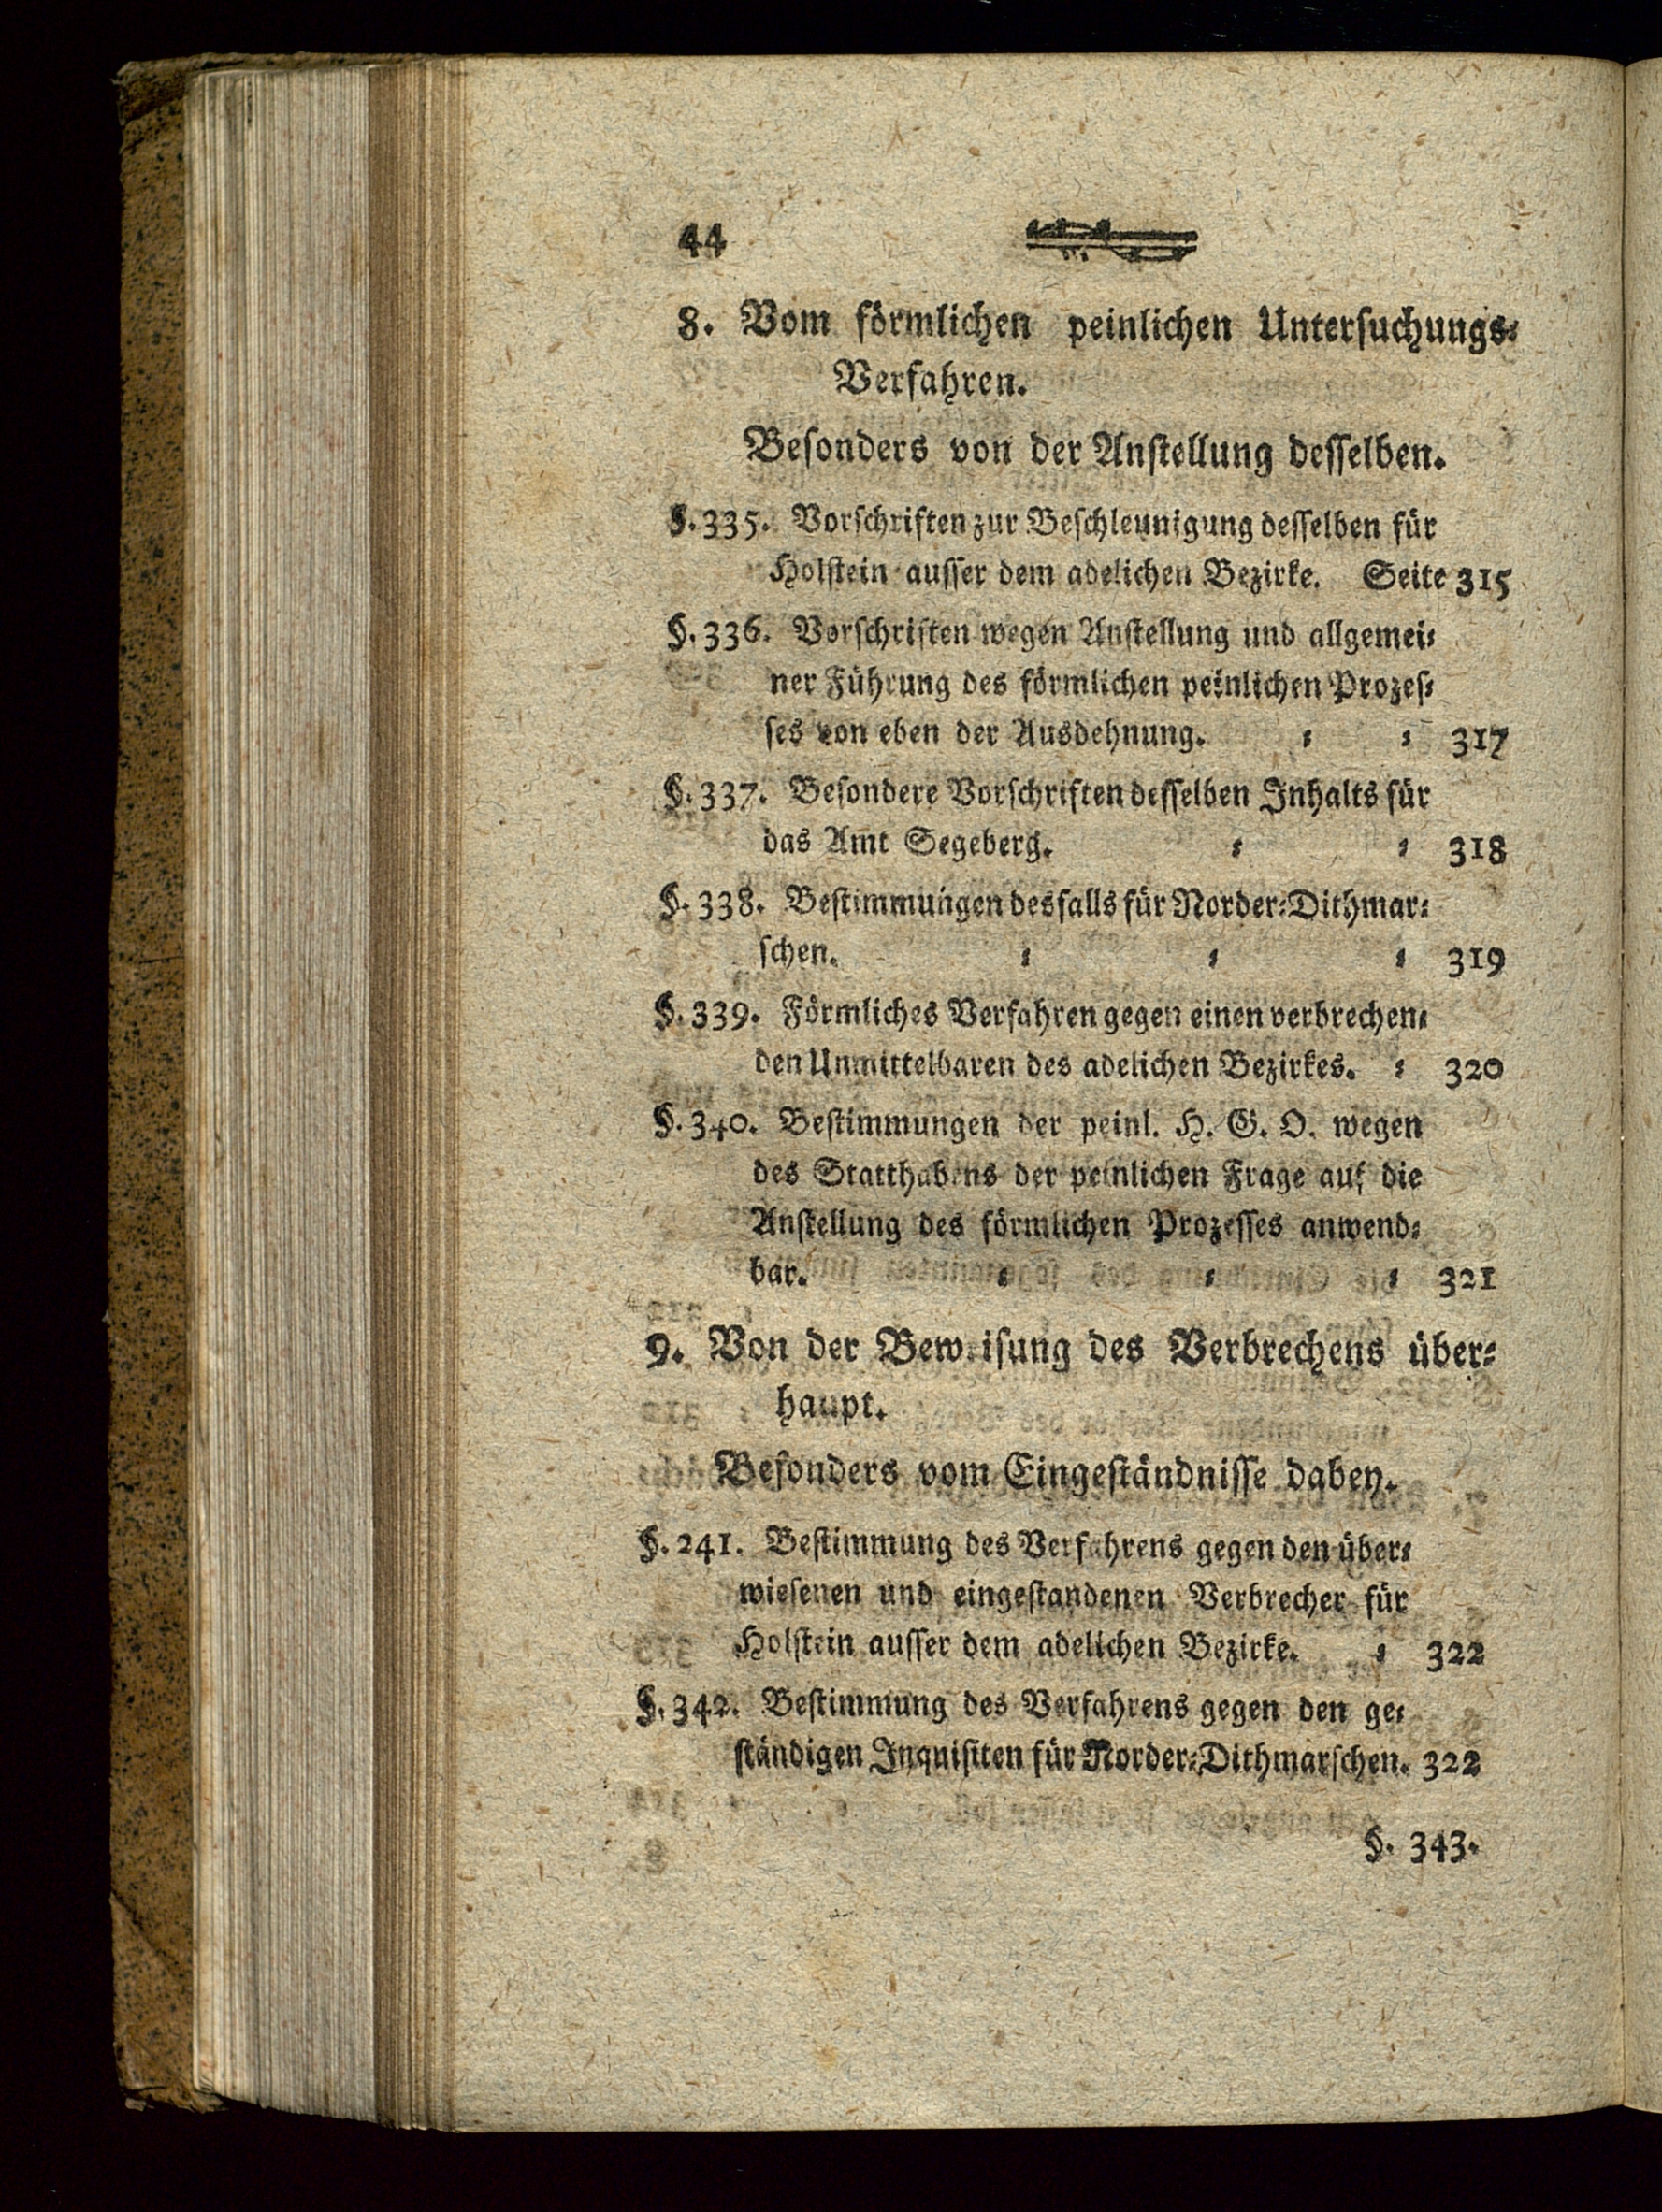 44
8. Vom förmlichen peinlichen Untersuchungs⸗
Verfahren.
Besonders von der Anstellung desselben.
§. 335. Vorschriften zur Beschleunigung desselben für
Holstein ausser dem adelichen Bezirke. Seite 315
§. 336. Vorschriften wegen Anstellung und allgemei⸗
ner Führung des förmlichen peinlichen Prozes⸗
ses von eben der Ausdehnung. ⸗ ⸗ 317
§. 337. Besondere Vorschriften desselben Inhalts für
das Amt Segeberg. ⸗ ⸗ 318
§. 338. Bestimmungen desfalls für Norder⸗Dithmar⸗
schen. ⸗ ⸗ ⸗ 319
§. 339. Förmliches Verfahren gegen einen verbrechen⸗
den Unmittelbaren des adelichen Bezirkes. ⸗ 320
§. 340. Bestimmungen der peinl. H. G. O. wegen
des Statthabens der peinlichen Frage auf die
Anstellung des förmlichen Prozesses anwend⸗
bar. ⸗ ⸗ ⸗ 321
9. Von der Beweisung des Verbrechens über⸗
haupt.
Besonders vom Eingeständnisse dabey.
§. 241. Bestimmung des Verfahrens gegen den über⸗
wiesenen und eingestandenen Verbrecher für
Holstein ausser dem adelichen Bezirke. ⸗ 322
§. 342. Bestimmung des Verfahrens gegen den ge⸗
ständigen Inquisiten für Norder⸗Dithmarschen. 322
§. 343.